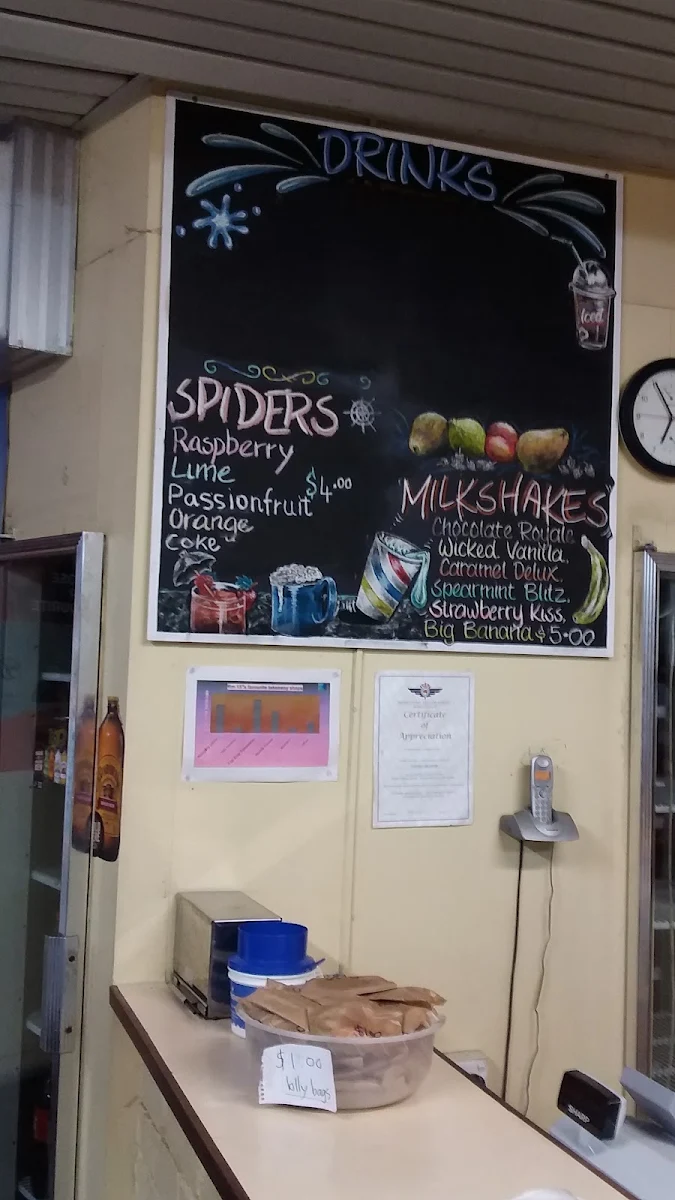 DRINKS
Iced
SPIDERS
Raspberry
Lime
Passionfruit
$4.00
Orange
Coke
MILKSHAKES
Chocolate Royale
Wicked Vanilla.
Caramel Delux.
Spearmint Blitz.
Strawberry Kiss.
Big Banana $5.00
favourite takeaway shops
Certificate
of
Appreciation
$1.00
lolly bags
SHARP